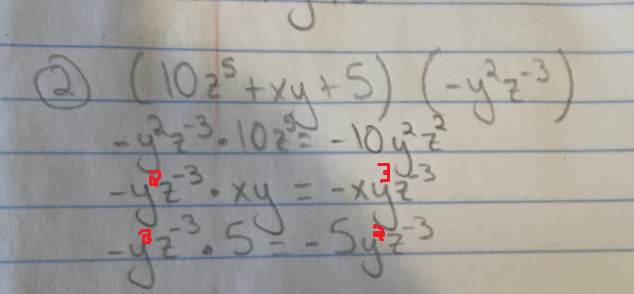 ② (10z⁵+xy+5) (-y²z⁻³)
-y²z⁻³·10z⁵=-10y²z²
-y²z⁻³·xy=-xy³z⁻³
-y²z⁻³·5=-5y²z⁻³